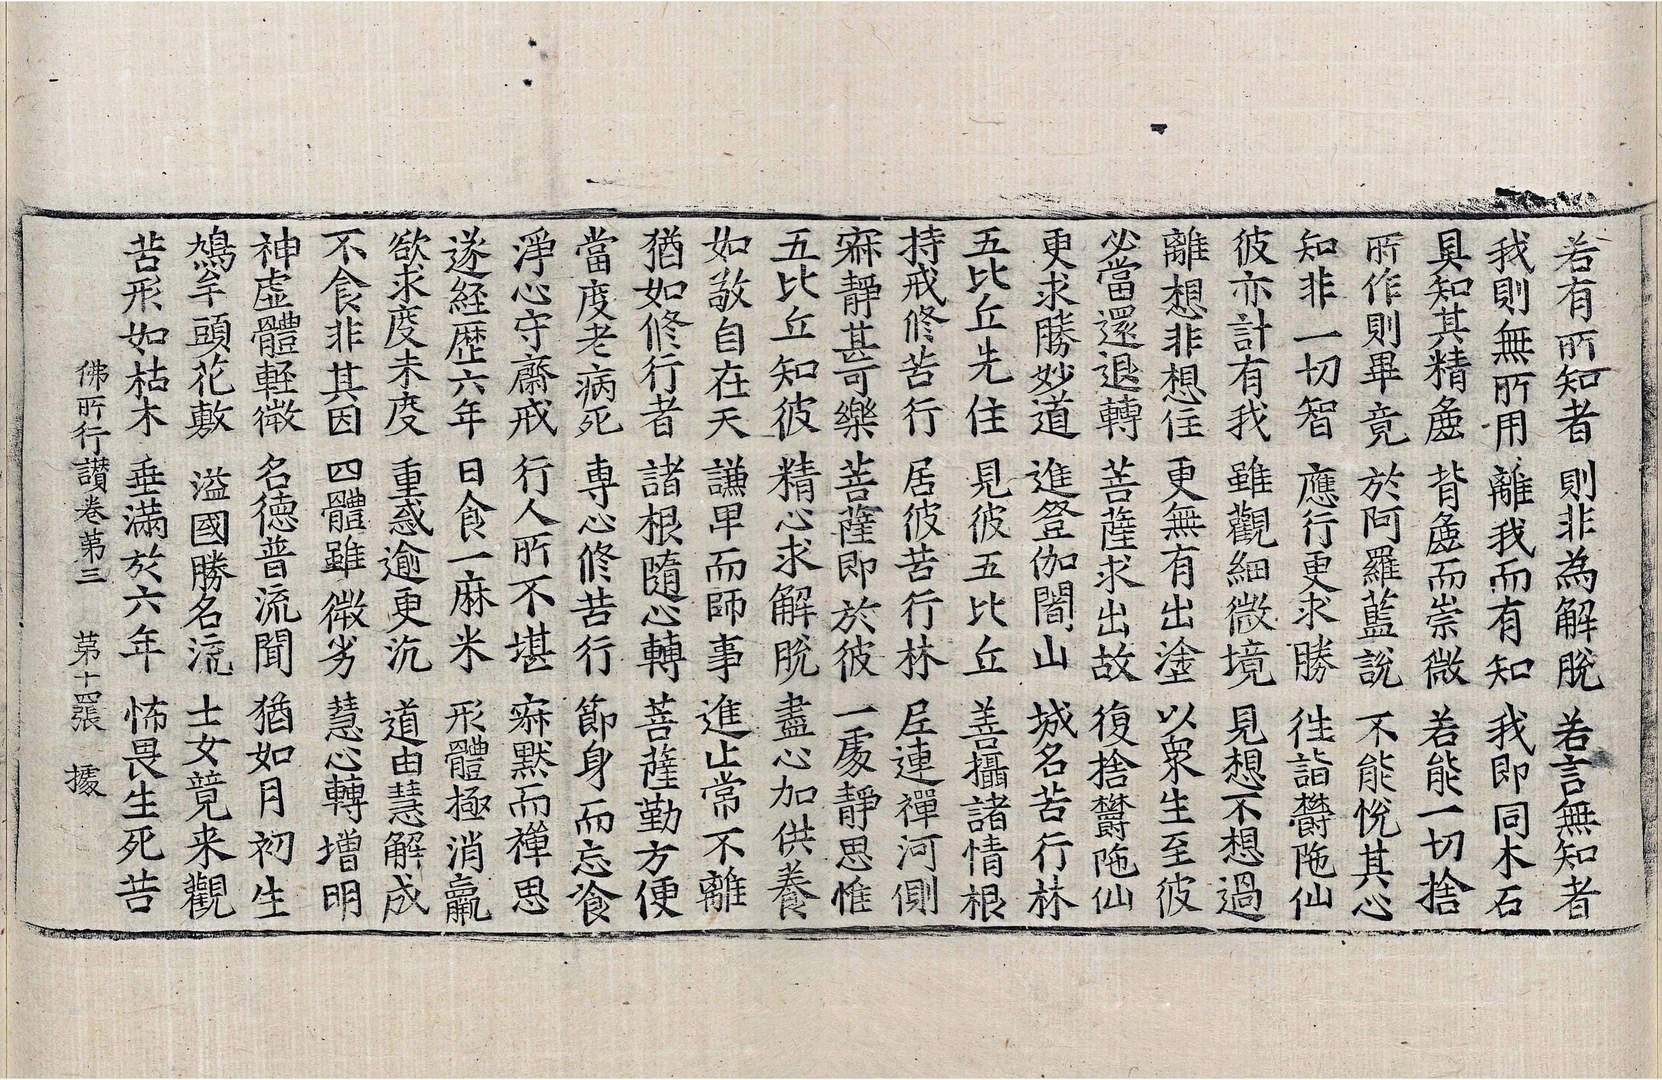 若有所知者 則非為解脫 若言無知者
我則無所用 離我而有知 我即同木石
具知其精麁 背麁而崇微 若能一切捨
所作則畢竟 於阿羅藍說 不能悅其心
知非一切智 應行更求勝 往詣欝陁仙
彼亦計有我 雖觀細微境 見想不想過
離想非想住 更無有出塗 以衆生至彼
必當還退轉 菩薩求出故 復捨欝陁仙
更求勝妙道 進登伽闍山 城名苦行林
五比丘先住 見彼五比丘 善攝諸情根
持戒修苦行 居彼苦行林 尼連禪河側
寂靜甚可樂 菩薩即於彼 一處靜思惟
五比丘知彼 精心求解脫 盡心加供養
如敬自在天 謙卑而師事 進止常不離
猶如修行者 諸根隨心轉 菩薩勤方便
當度老病死 專心修苦行 節身而忘飡
淨心守齋戒 行人所不堪 寂默而禪思
遂経歷六年 日食一麻米 形體極消羸
欲求度未度 重惑逾更沉 道由慧解成
不食非其因 四體雖微劣 慧心轉增明
神虛體輕微 名德普流聞 猶如月初生
鳩牟頭花敷 溢國勝名流 士女競来觀
苦形如枯木 垂滿於六年 怖畏生死苦
佛所行讃卷第三 第十四張 據